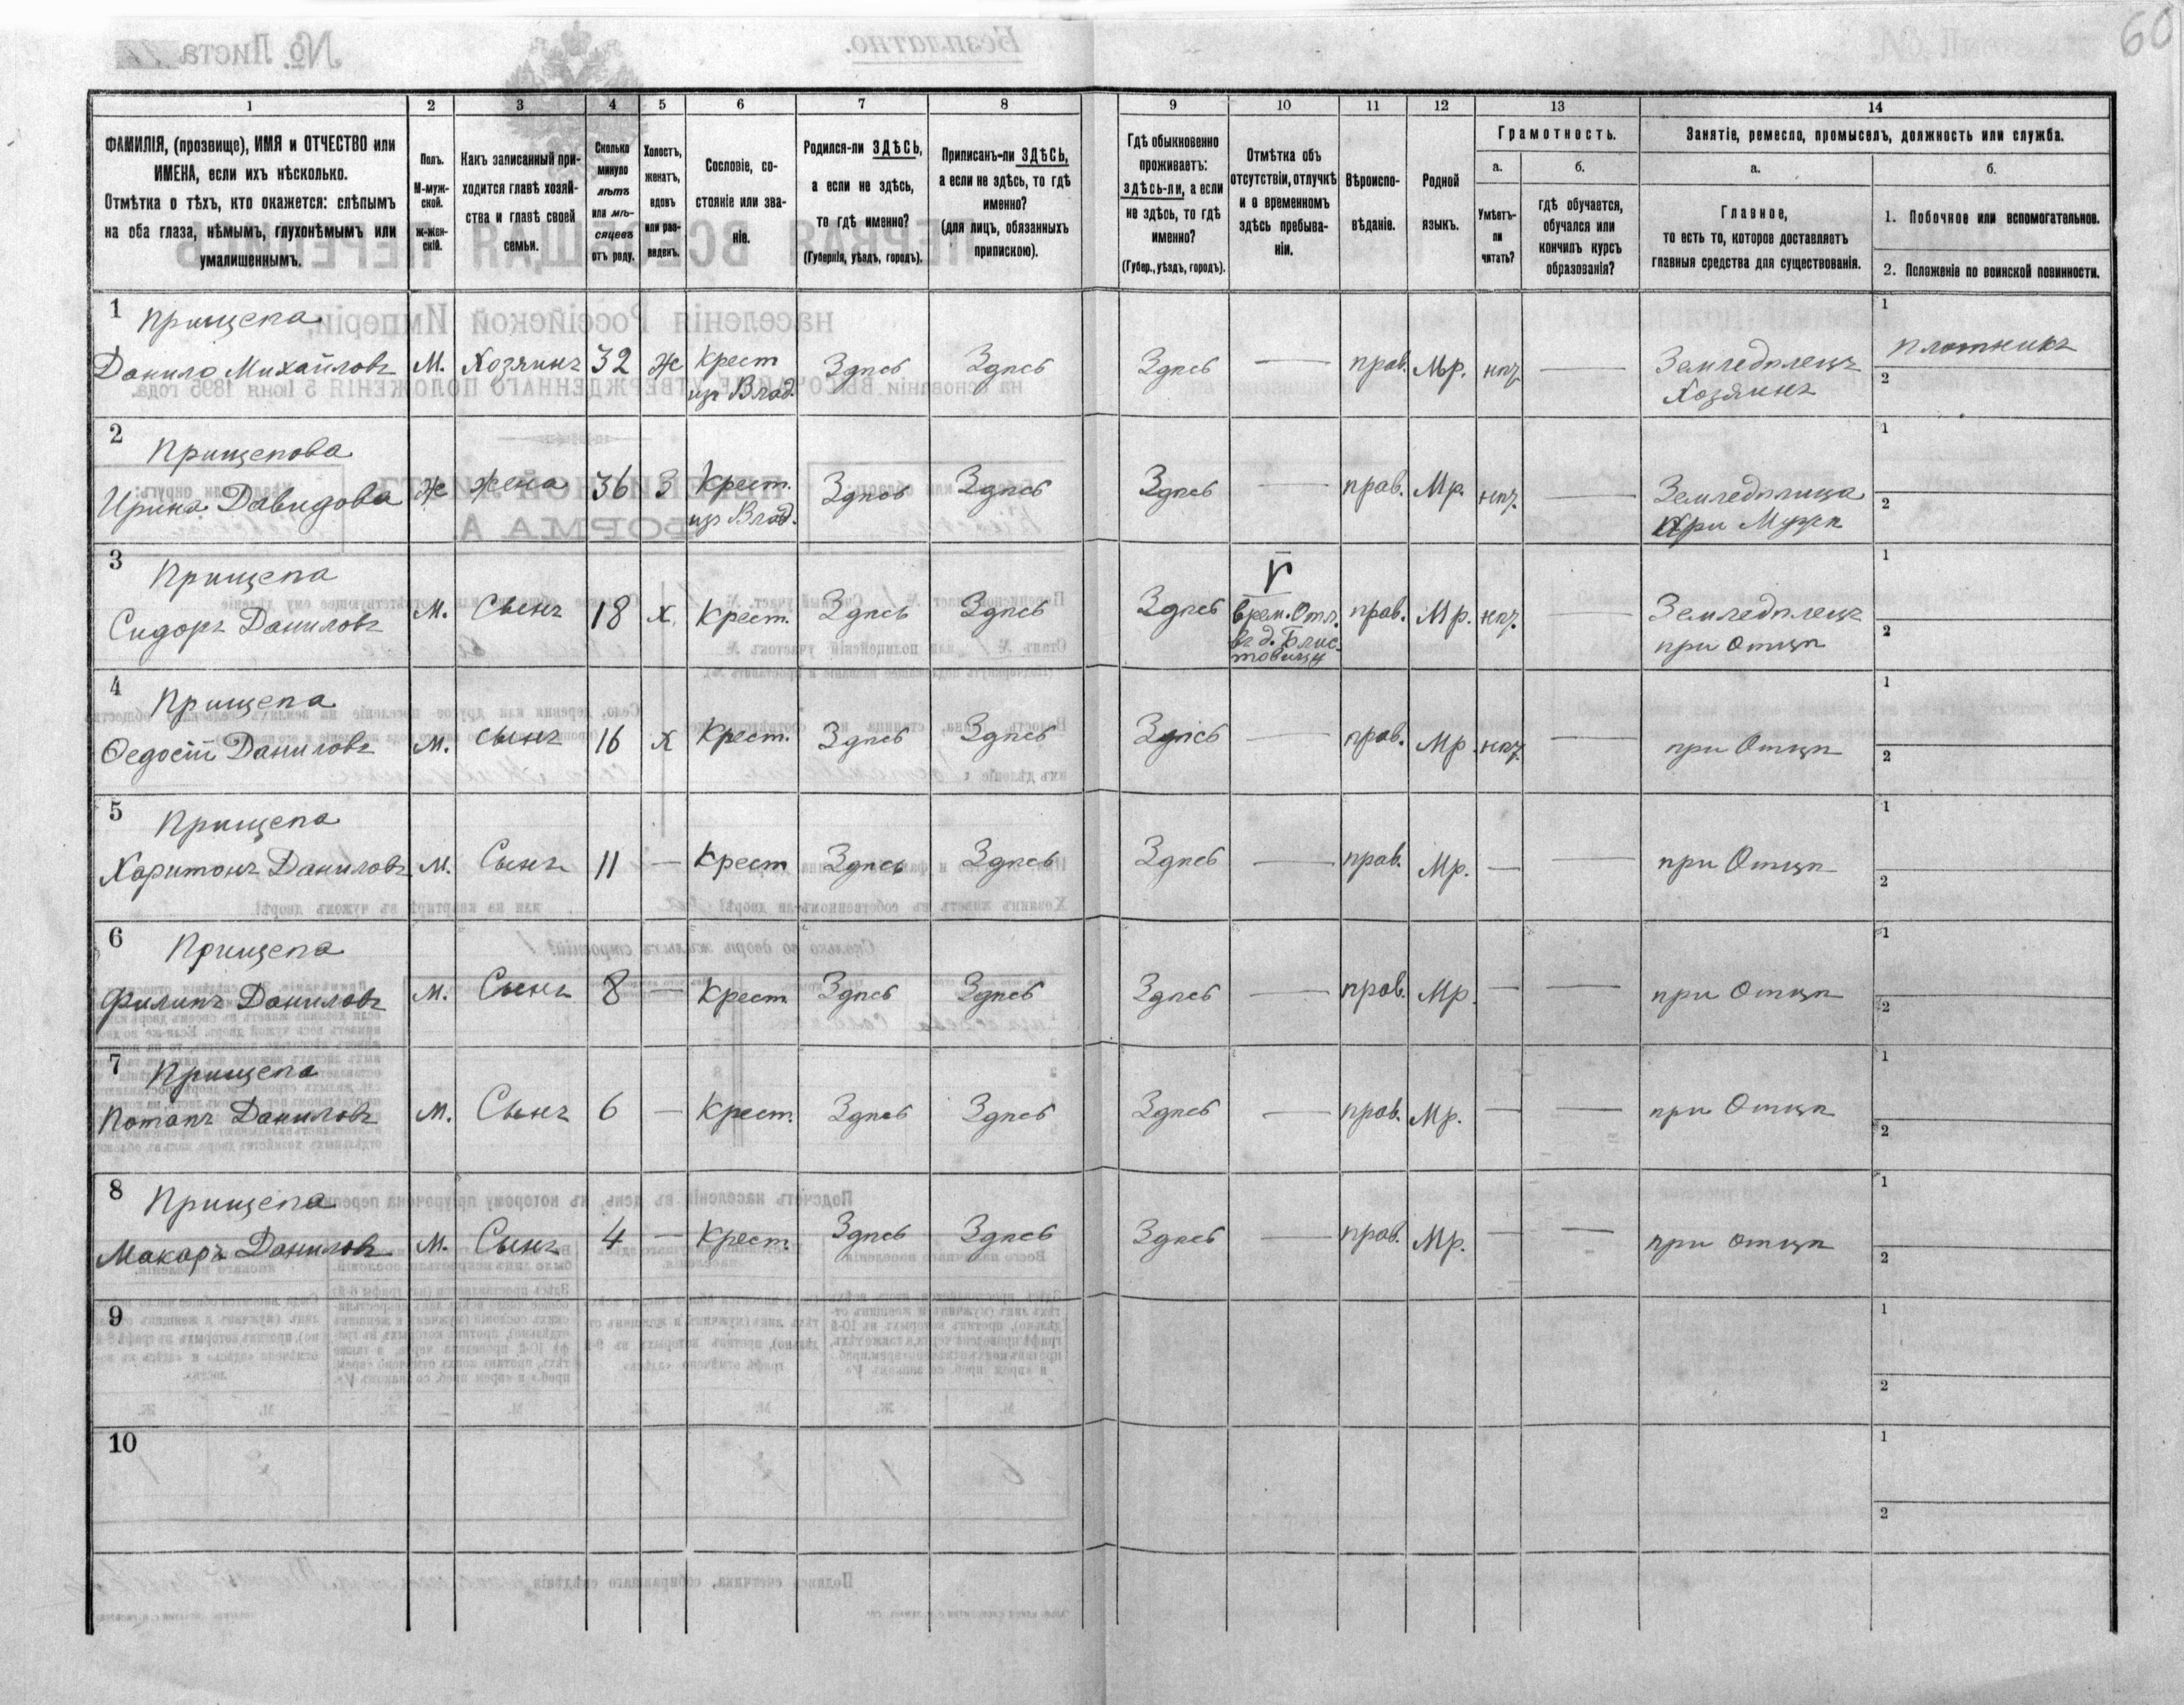 60
1 2 3 4 5 6 7 8 9 10 11 12 13 14
ФАМИЛІЯ, (прозвище), ИМЯ и ОТЧЕСТВО или
ИМЕНА, если ихъ нѣсколько.
Отмѣтка о тѣхъ, кто окажется: слѣпымъ
на оба глаза, нѣмымъ, глухонѣмымъ или
умалишеннымъ.
Полъ.
М-муж-
ской.
Ж-жен-
скій.
Какъ записанный при-
ходится главѣ хозяй-
ства и главѣ своей
семьи.
Сколько
минуло
лѣтъ
или мѣ-
сяцевъ
отъ роду.
Холостъ,
женатъ,
вдовъ
или раз-
веденъ.
Сословіе, со-
стояніе или зва-
ніе.
Родился-ли ЗДѢСЬ,
а если не здѣсь,
то гдѣ именно?
(Губернія, уѣздъ, городъ).
Приписанъ-ли ЗДѢСЬ,
а если не здѣсь, то гдѣ
именно?
(для лицъ, обязанныхъ
припискою).
Гдѣ обыкновенно
проживаетъ:
здѣсь-ли, а если
не здѣсь, то гдѣ
именно?
(Губер., уѣздъ, городъ).
Отмѣтка объ
отсутствіи, отлучкѣ
и о временномъ
здѣсь пребыва-
ніи.
Вѣроиспо-
вѣданіе.
Родной
языкъ.
Грамотность.
а.
Умѣетъ-
ли
читать?
б.
гдѣ обучается,
обучался или
кончилъ курсъ
образованія?
Занятіе, ремесло, промыселъ, должность или служба.
а.
Главное,
то есть то, которое доставляетъ
главныя средства для существованія.
б.
1. Побочное или вспомогательное.
2. Положеніе по воинской повинности.
1 Прищепа
Данило Михайловъ М. Хозяинъ 32 Ж Крест
из Влад. Здѣсь Здѣсь Здѣсь — прав. Мр. нѣ — Земледѣлецъ
Хозяинъ 1 плотникъ
2
2 Прищепова
Ирина Давидова Ж жена 36 З Крест.
из Влад. Здѣсь Здѣсь Здѣсь — прав. Мр. нѣ — Земледѣлица
При Мужѣ 1
2
3 Прищепа
Сидоръ Даниловъ М. Сынъ 18 х. Крест. Здѣсь Здѣсь Здѣсь V
врем. Отл.
въ д. Блис-
товицы прав. Мр. нѣ — Земледѣлецъ
при Отцѣ 1
2
4 Прищепа
Ѳедосій Даниловъ М. сынъ 16 х Крест. Здѣсь Здѣсь Здѣсь — прав. Мр. нѣ — при Отцѣ 1
2
5 Прищепа
Харитонъ Даниловъ М. Сынъ 11 — Крест Здѣсь Здѣсь Здѣсь — прав. Мр. — — при Отцѣ 1
2
6 Прищепа
Филипъ Даниловъ М. Сынъ 8 — Крест Здѣсь Здѣсь Здѣсь — прав. Мр. — — при Отцѣ 1
2
7 Прищепа
Потапъ Даниловъ М. Сынъ 6 — Крест. Здѣсь Здѣсь Здѣсь — прав. Мр. — — при Отцѣ 1
2
8 Прищепа
Макаръ Даниловъ М. Сынъ 4 — Крест. Здѣсь Здѣсь Здѣсь — прав. Мр. — — при отцѣ 1
2
9 1
2
10 1
2